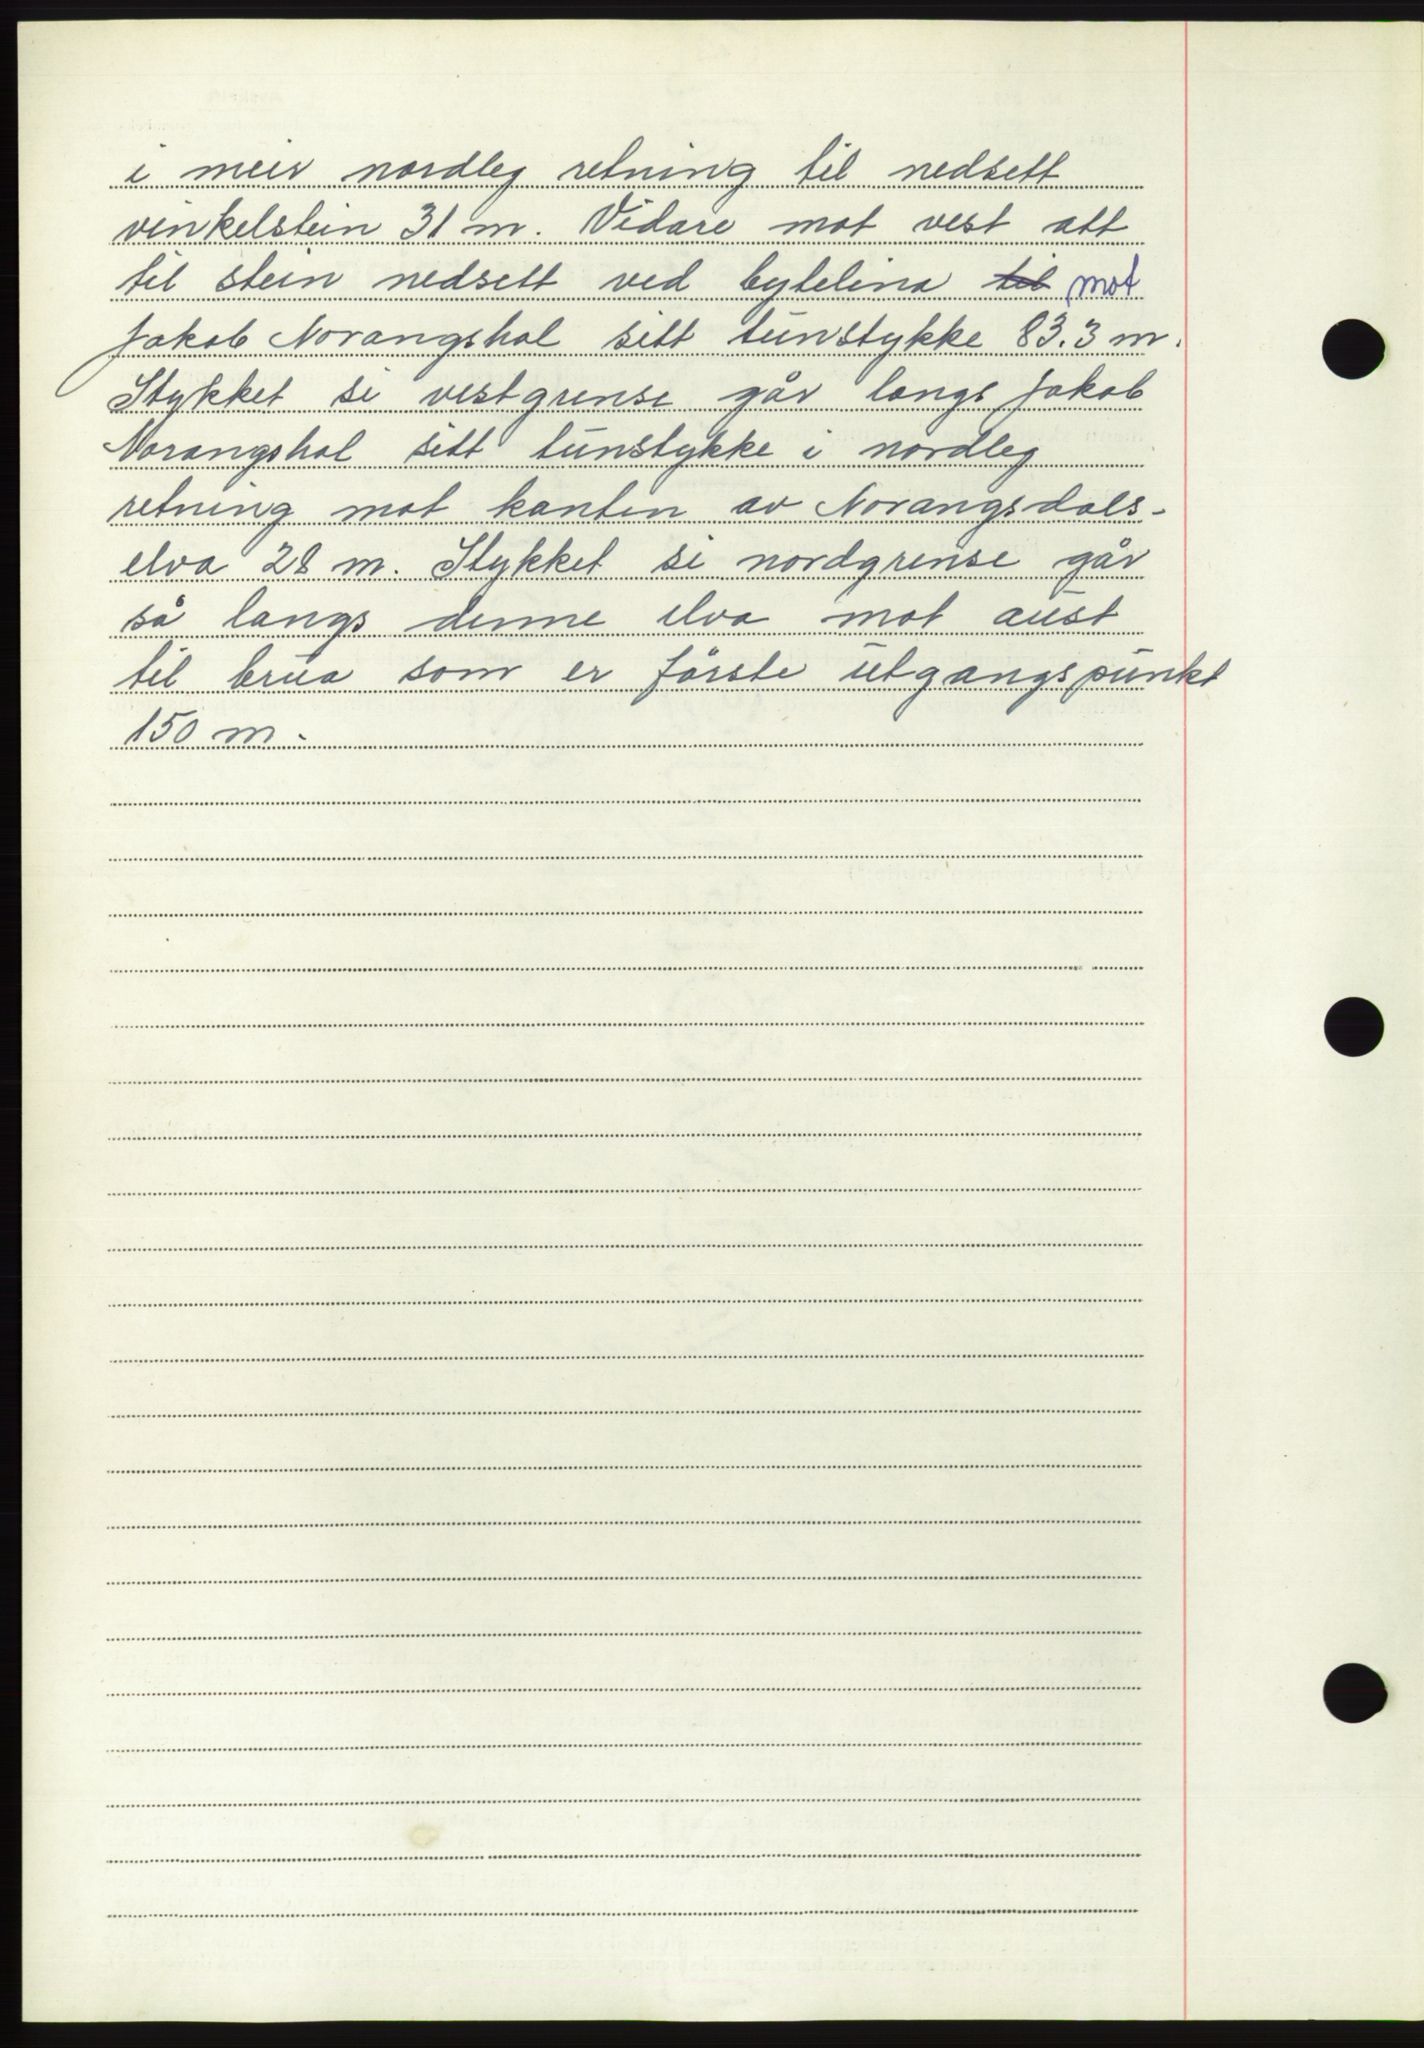 i meir nordleg retning til nedsett
vinkelstein 31 m. Vidare mot vest att
til stein nedsett ved bytelina til mot
Jakob Norangshol sitt tunstykke 83.3 m.
Stykket si vestgrense går langs Jakob
Norangshol sitt tunstykke i nordleg
retning mot kanten av Norangsdals-
elva 28 m. Stykket si nordgrense går
så langs denne elva mot aust
til brua som er förste utgangspunkt
150 m.